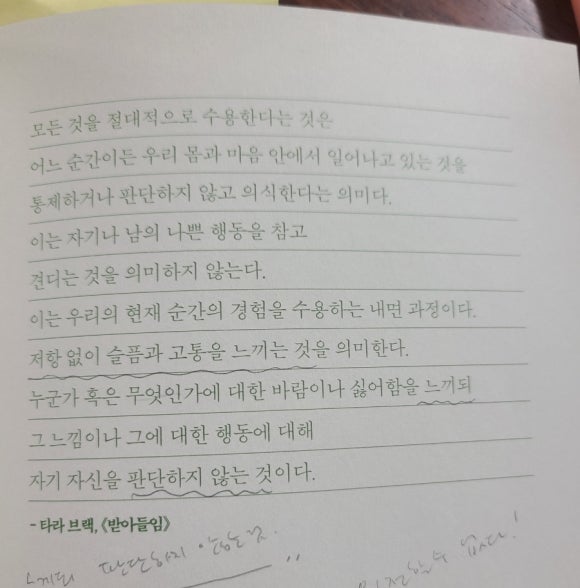 모든 것을 절대적으로 수용한다는 것은
어느 순간이든 우리 몸과 마음 안에서 일어나고 있는 것을
통제하거나 판단하지 않고 의식한다는 의미다.
이는 자기나 남의 나쁜 행동을 참고
견디는 것을 의미하지 않는다.
이는 우리의 현재 순간의 경험을 수용하는 내면 과정이다.
저항 없이 슬픔과 고통을 느끼는 것을 의미한다.
누군가 혹은 무엇인가에 대한 바람이나 싫어함을 느끼되
그 느낌이나 그에 대한 행동에 대해
자기 자신을 판단하지 않는 것이다.
- 타라 브랙, 《받아들임》
느끼되 판단하지 않는것.